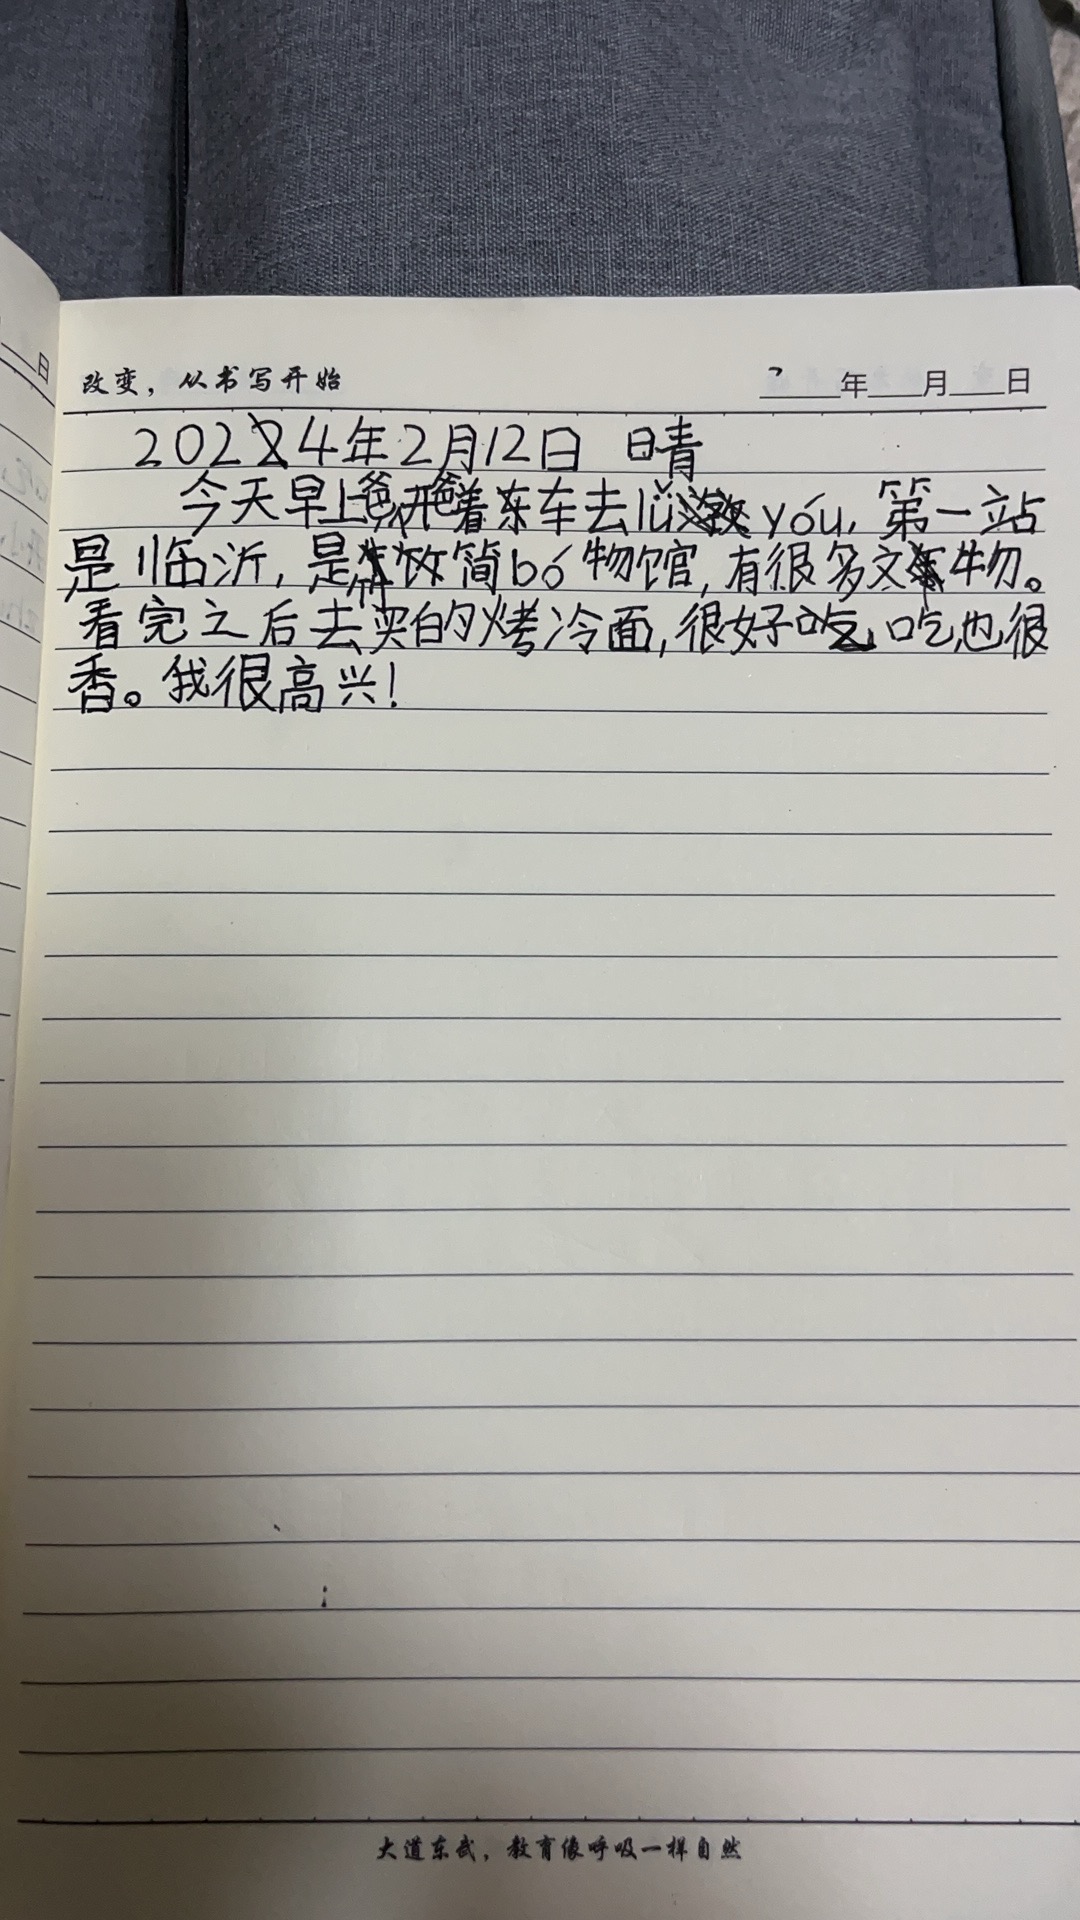 日
改变，从书写开始
年 月 日
2024年2月12日 晴
今天早上爸爸开着东车去lǚ yóu，第一站
是临沂，是竹简bó物馆，有很多文物。
看完之后去买的烤冷面，很好吃，吃也很
香。我很高兴！
大道东武，教育像呼吸一样自然